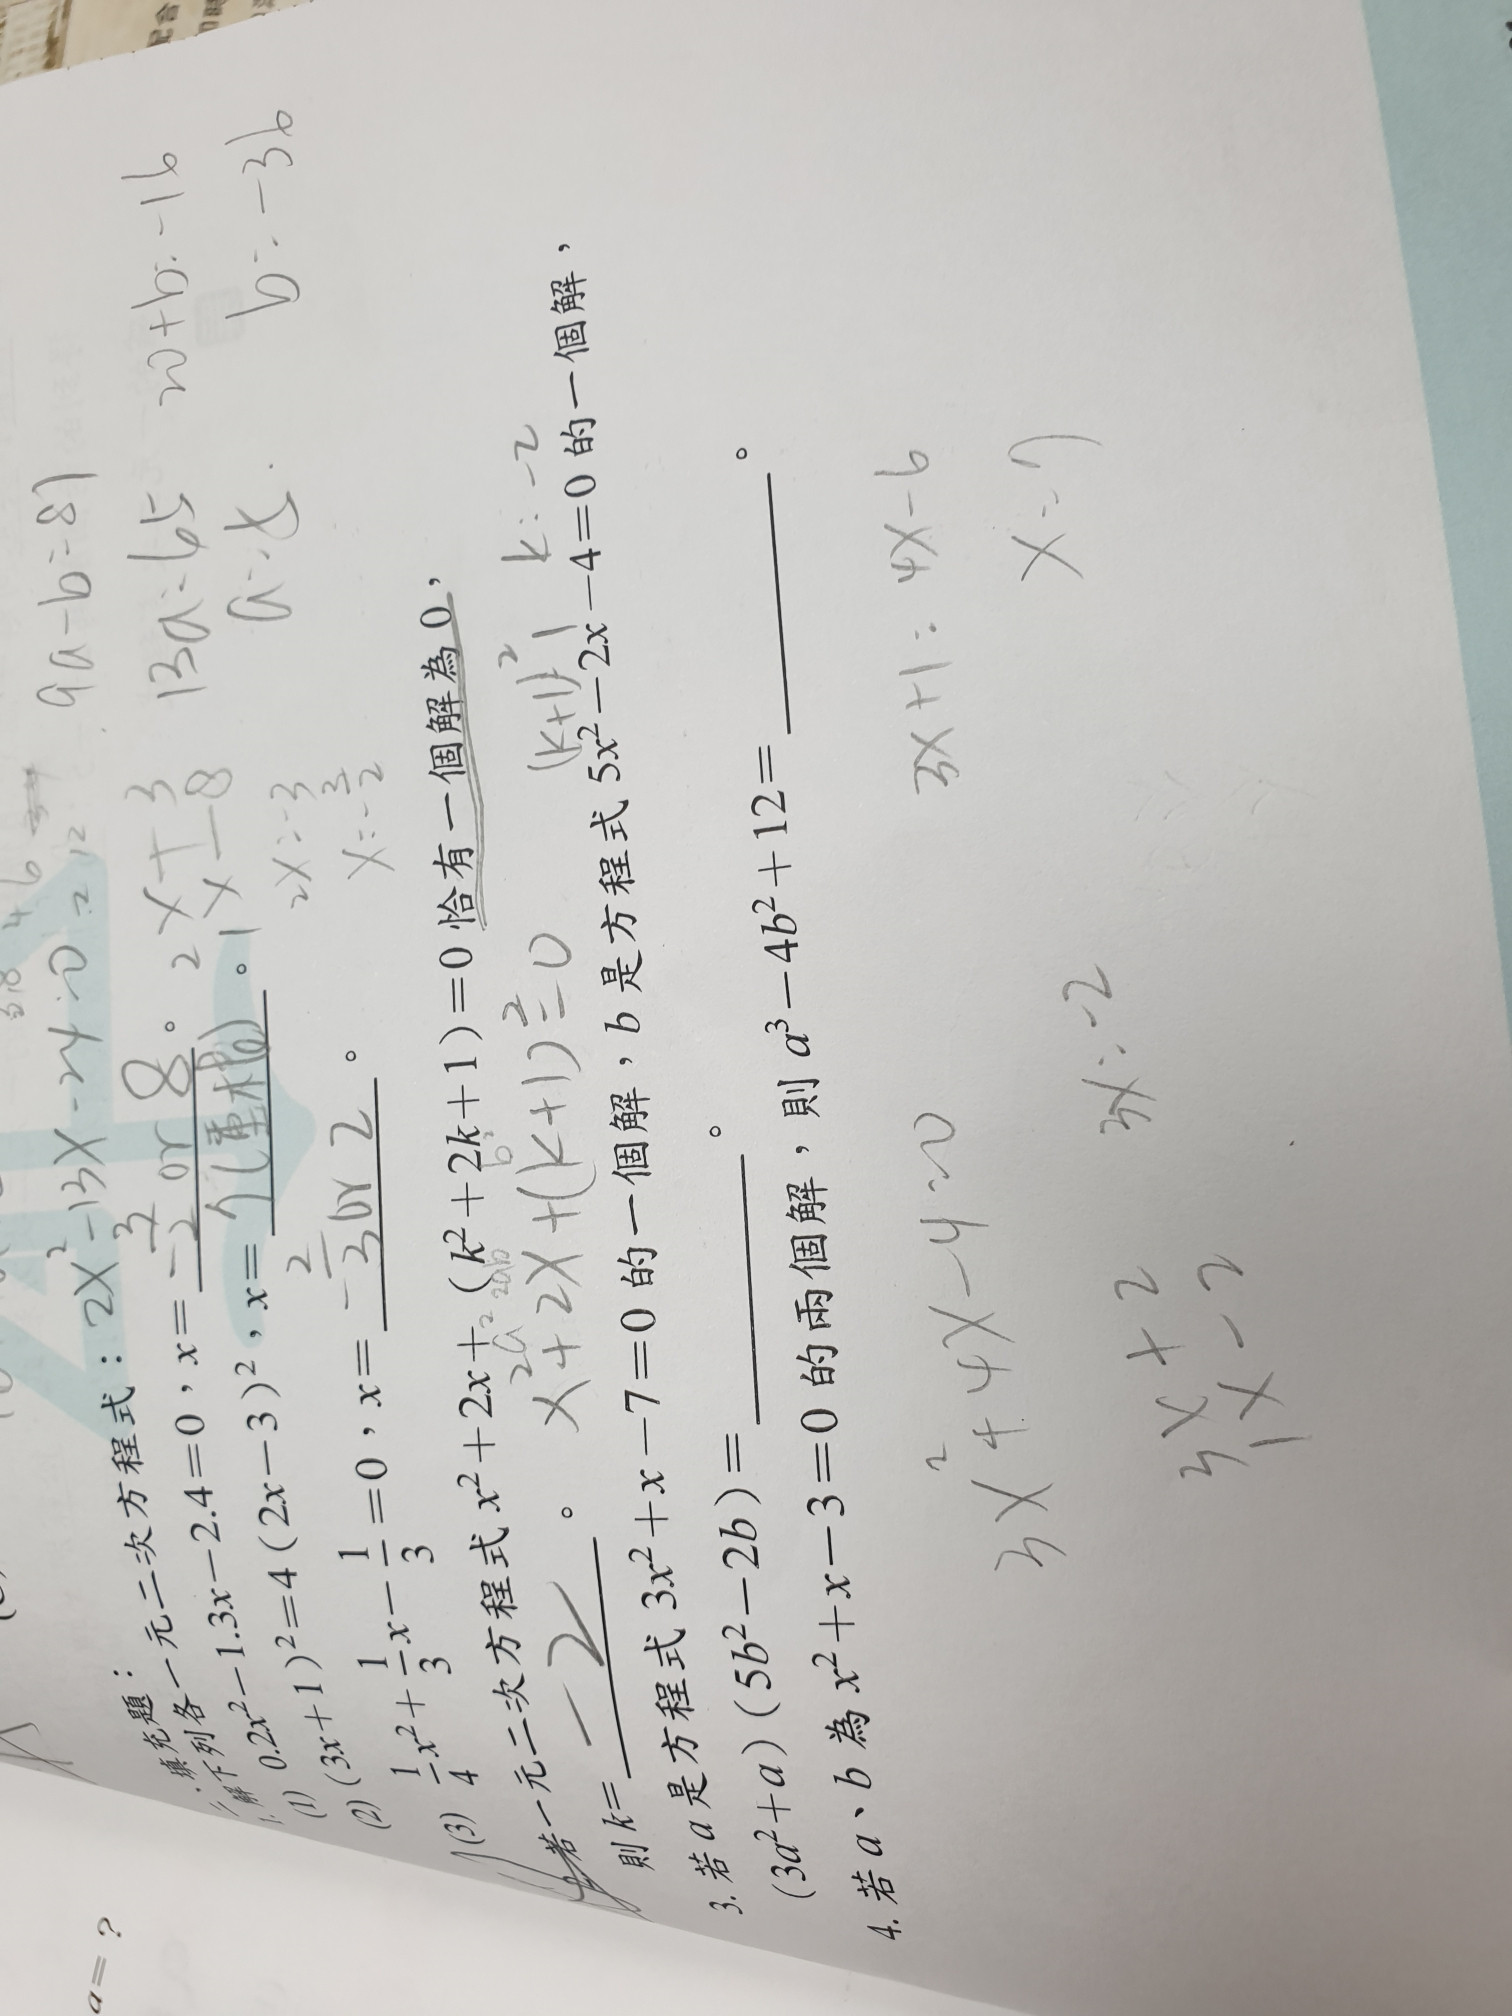 a=?
9a-b=81
2x²-13x-24=0
13a=65
20+b=-16
a=5
b=-36
二、填充題：
1. 解下列各一元二次方程式：
(1) 0.2x²-1.3x-2.4=0，x= -3/2 or 8 。
2x+3
1x-8
(2) (3x+1)²=4(2x-3)²，x= 7(重根) 。
2x=-3
x=-3/2
(3) 1/4x²+1/3x-1/3=0，x= -2/3 or 2 。
2. 若一元二次方程式 x²+2x+(k²+2k+1)=0 恰有一個解為 0，
則 k= -2 。
x²+2x+(k+1)²=0
(k+1)²
k=-2
3. 若 a 是方程式 3x²+x-7=0 的一個解，b 是方程式 5x²-2x-4=0 的一個解，
(3a²+a)(5b²-2b)= 。
4. 若 a、b 為 x²+x-3=0 的兩個解，則 a³-4b²+12= 。
3x²+4x-4=0
3x+1=4x-6
x=7
3x+2
1x-2
3x=-2